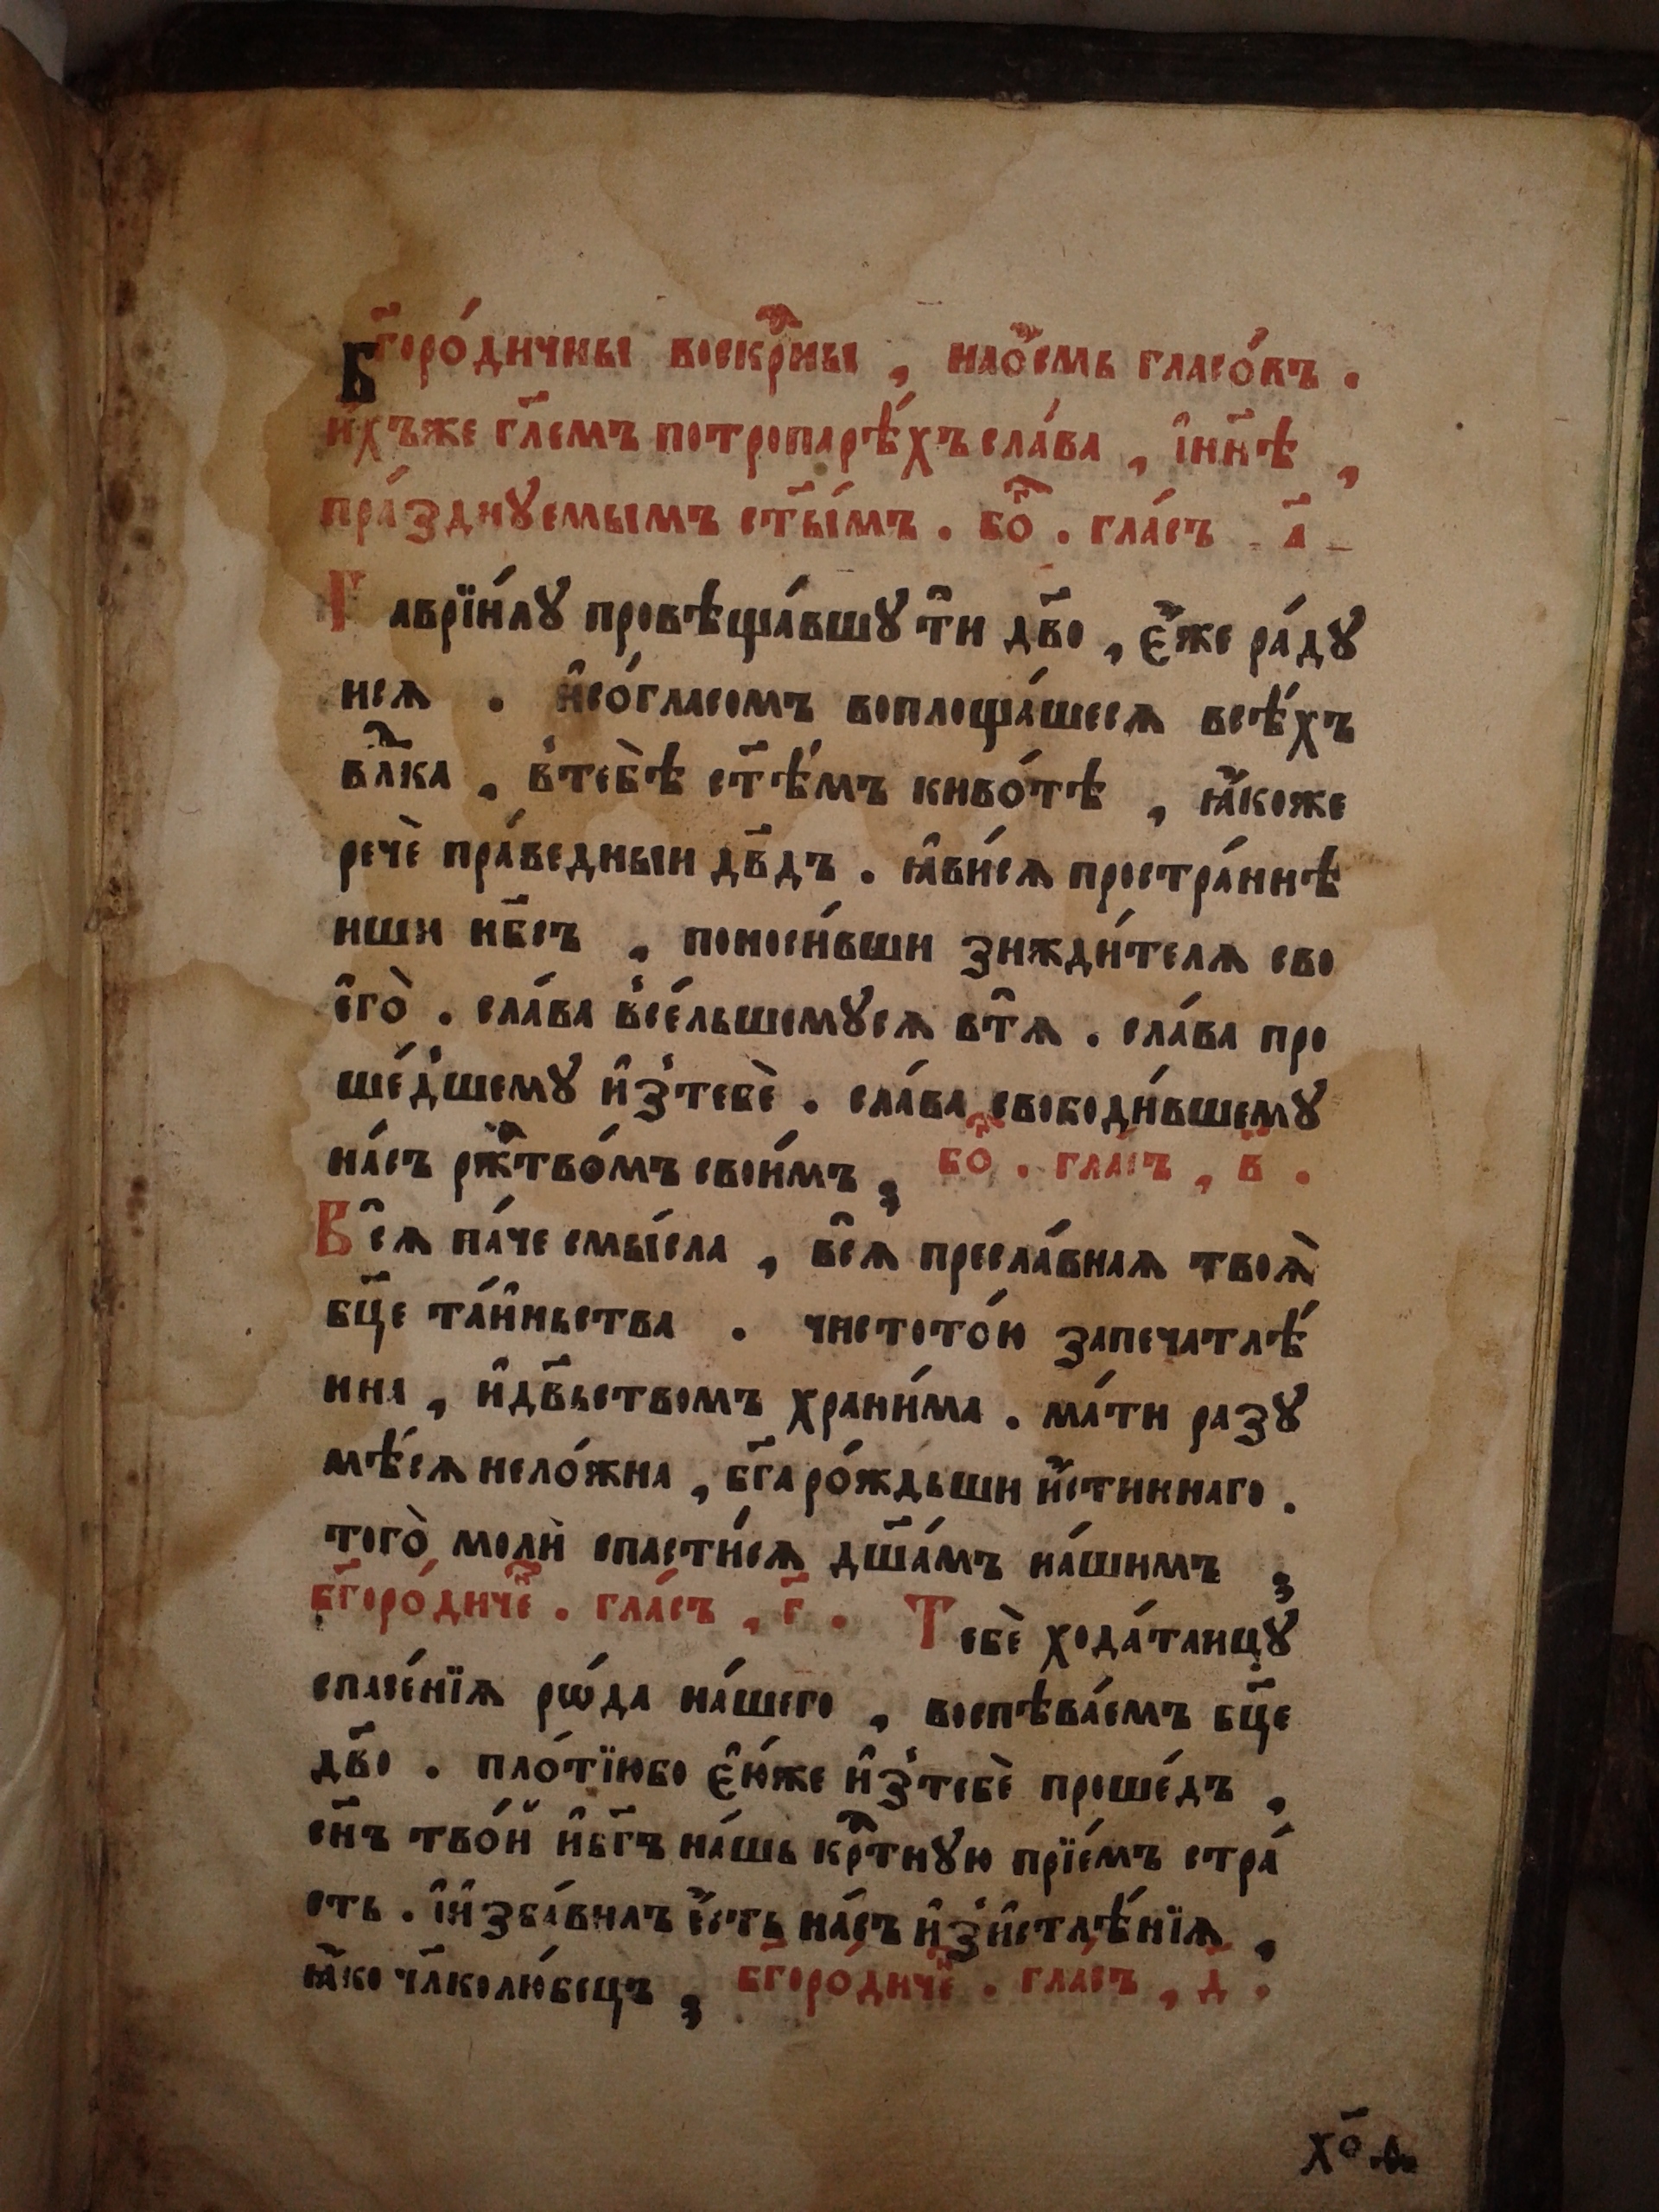 Бг҃оро́дичны воскр҇ны , наѻ҆́смь гласо́въ .
и҆́хъже гл҃емъ потропарѣ́хъ сла́ва , і҆нн҃ѣ ,
пра́зднꙋемымъ ст҃ы́мъ . бо҇ . гла́съ а҃
Гаврїи́лꙋ провѣща́вшꙋ ти҆ дв҃о , є҆́же ра́дꙋ
исѧ . и҆со́гласомъ воплоща́шесѧ всѣ́хъ
вл҇ка , в̾тебѐѣ ст҃ѣ́мъ киво́тѣ , ꙗ҆́коже
речѐ пра́ведныи дв҃дъ . ꙗ҆ви́сѧ простра́ннѣ
иши нб҃съ , поноси́вши зижди́телѧ сво
е҆го̀ . сла́ва в̾се́льшемꙋсѧ втѧ҆ . сла́ва про
ше́д̾шемꙋ и҆з̾тебѐ . сла́ва свободи́вшемꙋ
на́съ рж҇тво́мъ свои́мъ , бо҇ . гла́съ , в҃ .
Всѧ҆ па́че смы́сла , всѧ҆̀ пресла́внаѧ твоѧ̀
бц҃е та́и҆ньства . чистото́ю запечатлѣ́
нна , и҆дв҃ьствомъ храни́ма . ма́ти разꙋ
мѣ́сѧ нело́жна , бг҃а ро́ждьши и҆́стиннаго .
того̀ моли̂ спасти́сѧ дш҃а́мъ на́шимъ ,
бг҃оро́диче҇ . гла́съ , г҃ . Тебѐ хода́таицꙋ
спасе́нїѧ рѡ́да на́шего , воспѣва́емъ бц҃е
дв҃о . пло́тїюбо є҆ю́же и҆з̾тебѐ проше́дъ ,
сн҃ъ тво́й и҆бг҃ъ на́шь кр҇тнꙋю прїе́мъ стра́
сть . і҆и҆зба́вилъ є҆́сть на́съ и҆з̾и҆стлѣ́нїѧ ,
ꙗ҆́ко чл҃колю́бецъ , бг҃оро́диче҇ . гла́съ , д҃ .